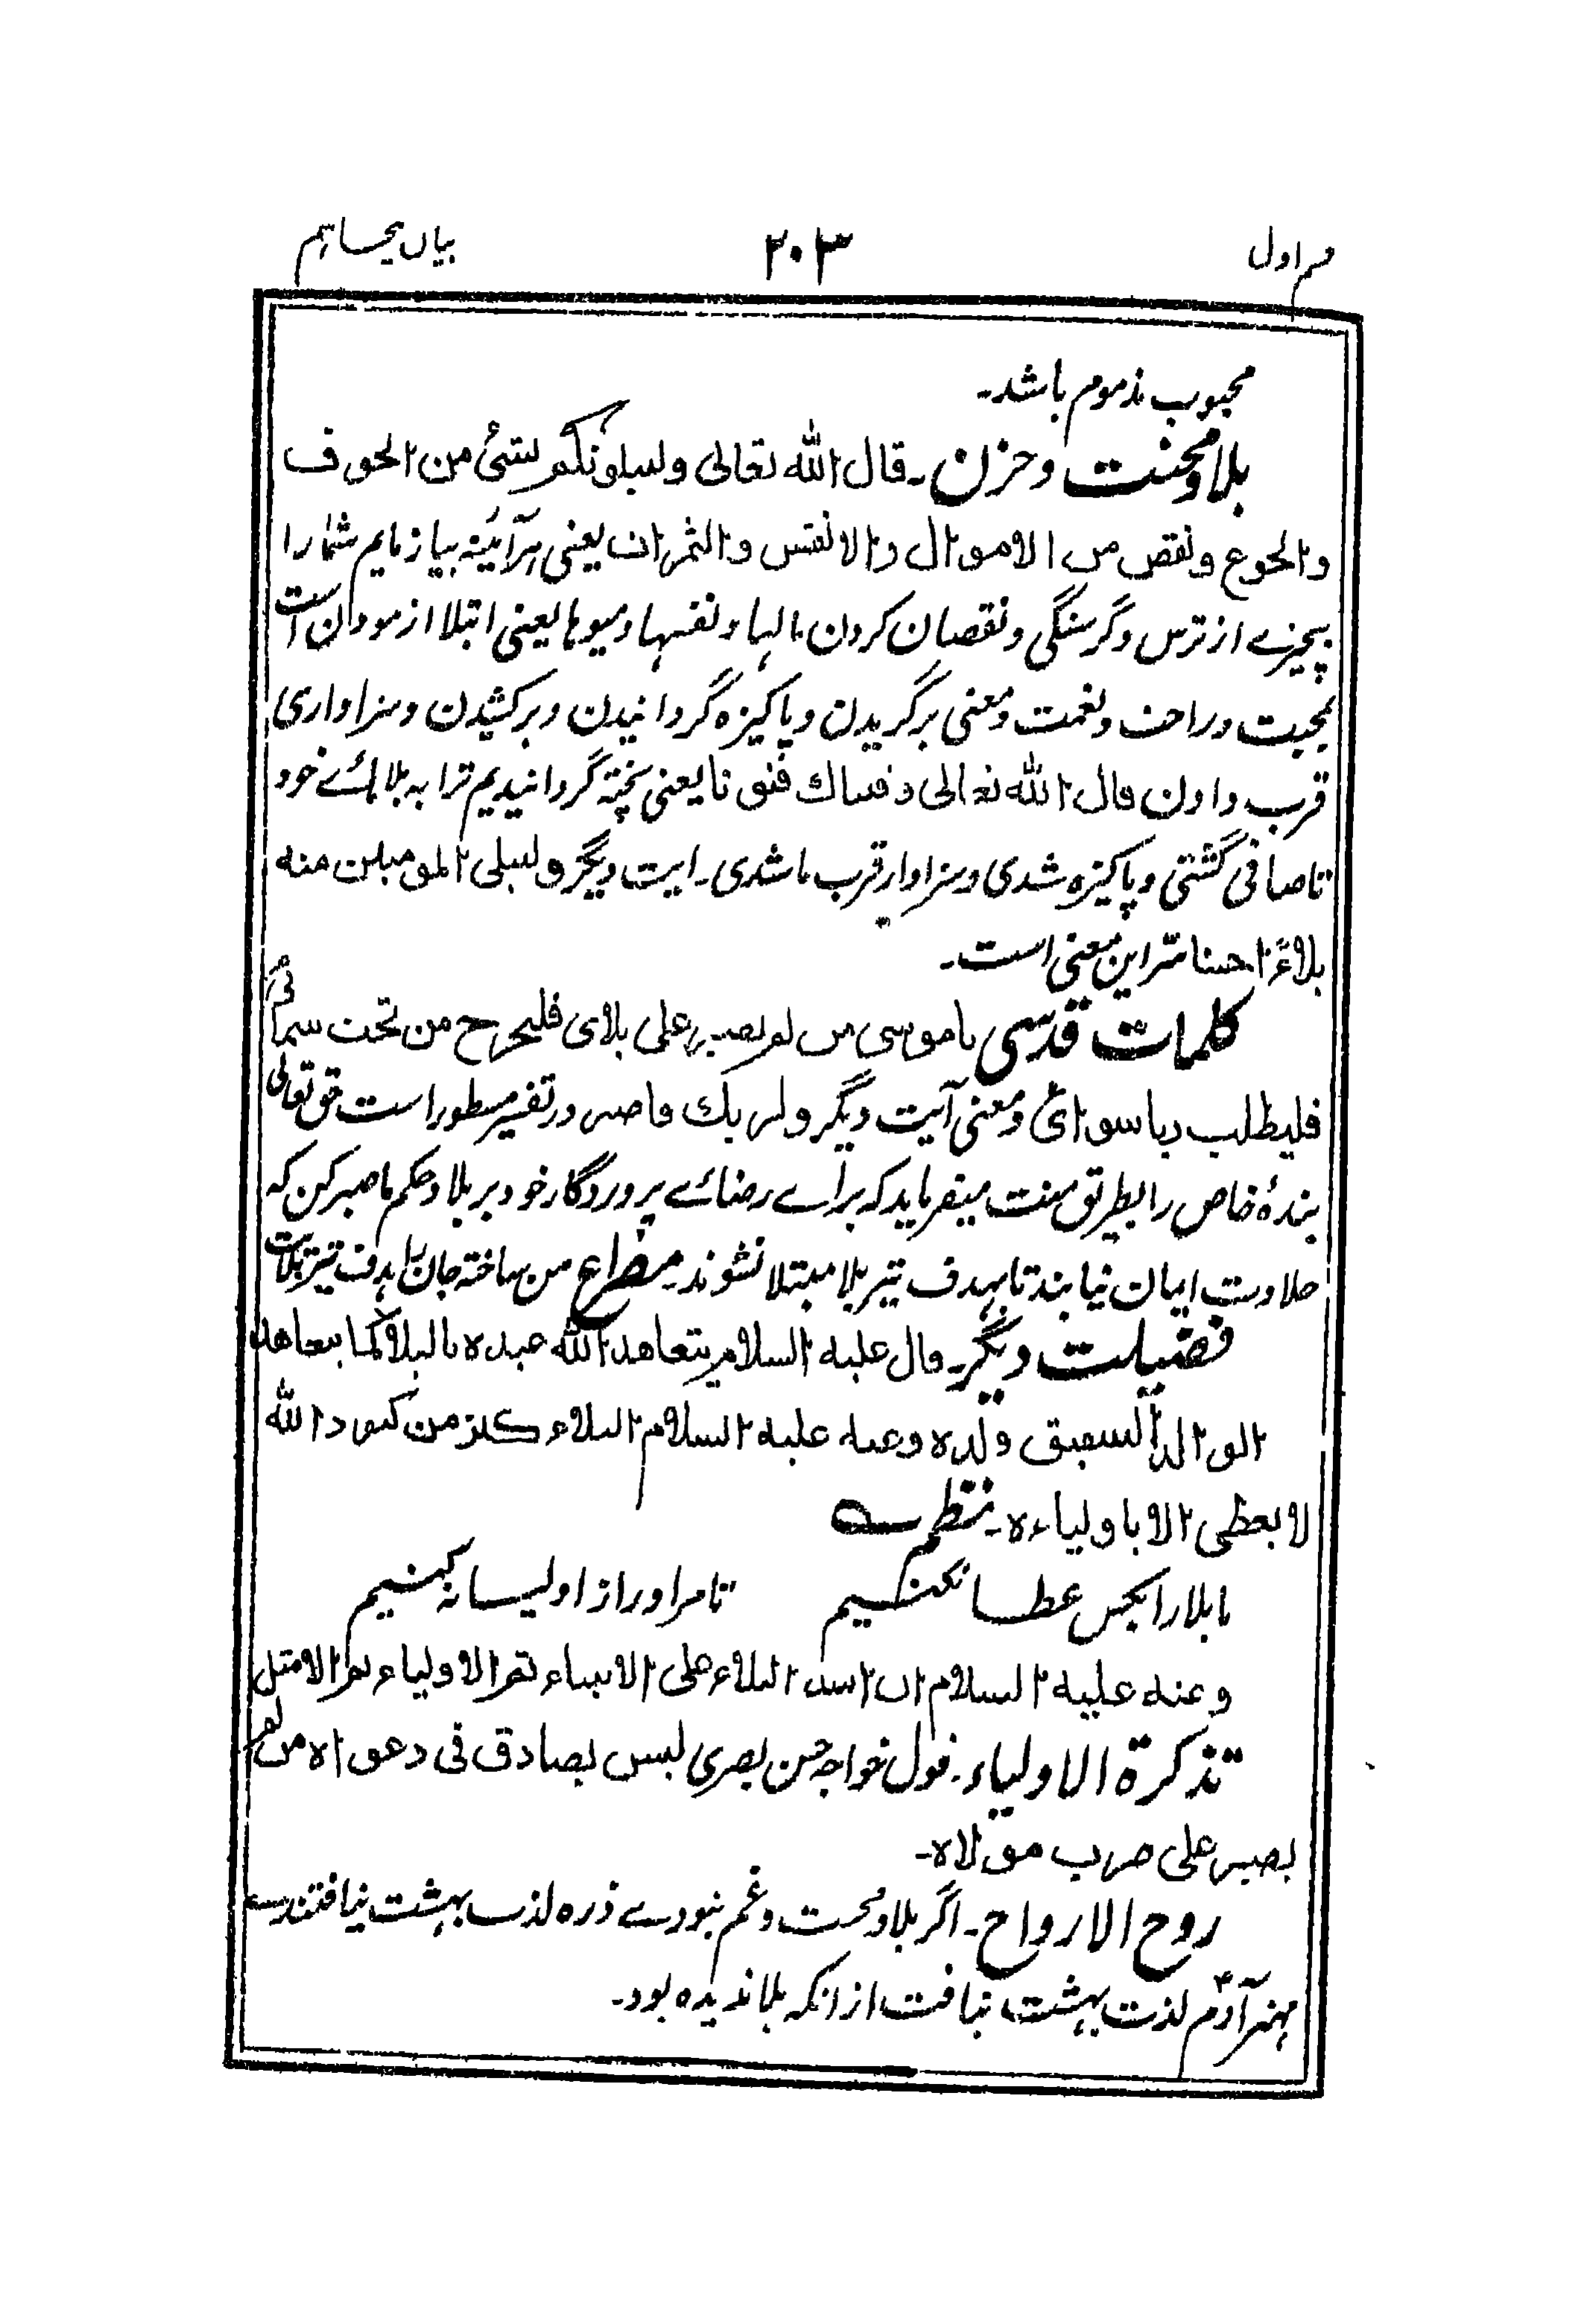 قسم اول ٢٠٣ بیان پنجاهم
محبوب مذموم باشد۔
بلا و محنت و حزن۔ قال الله تعالى ولنبلونكم بشئ من الخوف
والجوع ونقص من الاموال والانفس والثمرات یعنی ہرآئینہ بیازمایم شما را
بچیزے از ترس و گرسنگی و نقصان کردن مالہا و نفسہا و میوہا یعنی ابتلا ازمودن است
بمحبت و راحت و نعمت و معنی برگزیدن و پاکیزہ گردانیدن و برکشیدن و سزاواری
قرب دادن قال الله تعالى وفتناك فتونا یعنی پختہ گردانیدیم ترا بہ بلاہائے خود
تا صافی گشتی و پاکیزہ شدی و سزاوار قرب ما شدی۔ ایت دیگر وليبلى المومنين منه
بلاءً حسنا نیز این معنی است۔
کلمات قدسی یا موسی من لم يصبر على بلائى فليخرج من تحت سمائى
فليطلب ربا سوائى و معنی آیت دیگر ولربك فاصبر در تفسیر مسطور است حق تعالی
بندۂ خاص را بطریق منت میفرماید کہ براے رضائے پروردگار خود بر بلا و حکم ما صبر کن کہ
حلاوت ایمان نیابند تا بہدف تیر بلا مبتلا نشوند۔ مصراع من ساختہ جان را ہدف تیر بلایت
فضیلت دیگر۔ قال عليه السلام يتعاهد الله عبده بالبلاء كما يتعاهد
الوالد الشفيق ولده وعنه عليه السلام البلاء كنز من كنوز الله
لا يعطى الا باولياءه۔ نظم
ما بلا را بکس عطا نکنیم تا مر او را ز اولیا نہ کنیم
وعنه عليه السلام ان اشد البلاء على الانبياء ثم الاولياء ثم الامثل
تذکرۃ الاولیاء۔ قول خواجہ حسن بصری ليس بصادق فى دعواه من لم
يصبر على ضرب مولاه۔
روح الارواح۔ اگر بلا و محنت و غم نبودے ذرہ لذت بہشت نیافتندے
مہتر آدمؑ لذت بہشت نیافت از انکہ بلا ندیدہ بود۔